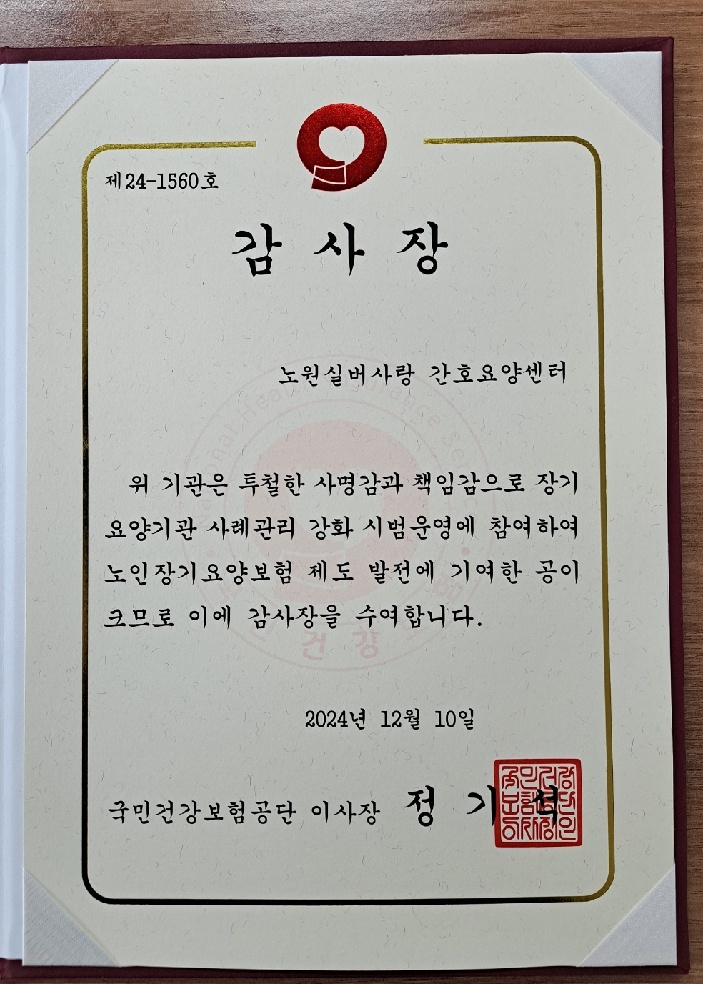 제24-1560호
감사장
노원실버사랑 간호요양센터
위 기관은 투철한 사명감과 책임감으로 장기
요양기관 사례관리 강화 시범운영에 참여하여
노인장기요양보험 제도 발전에 기여한 공이
크므로 이에 감사장을 수여합니다.
건강
2024년 12월 10일
국민건강보험공단 이사장 정기석